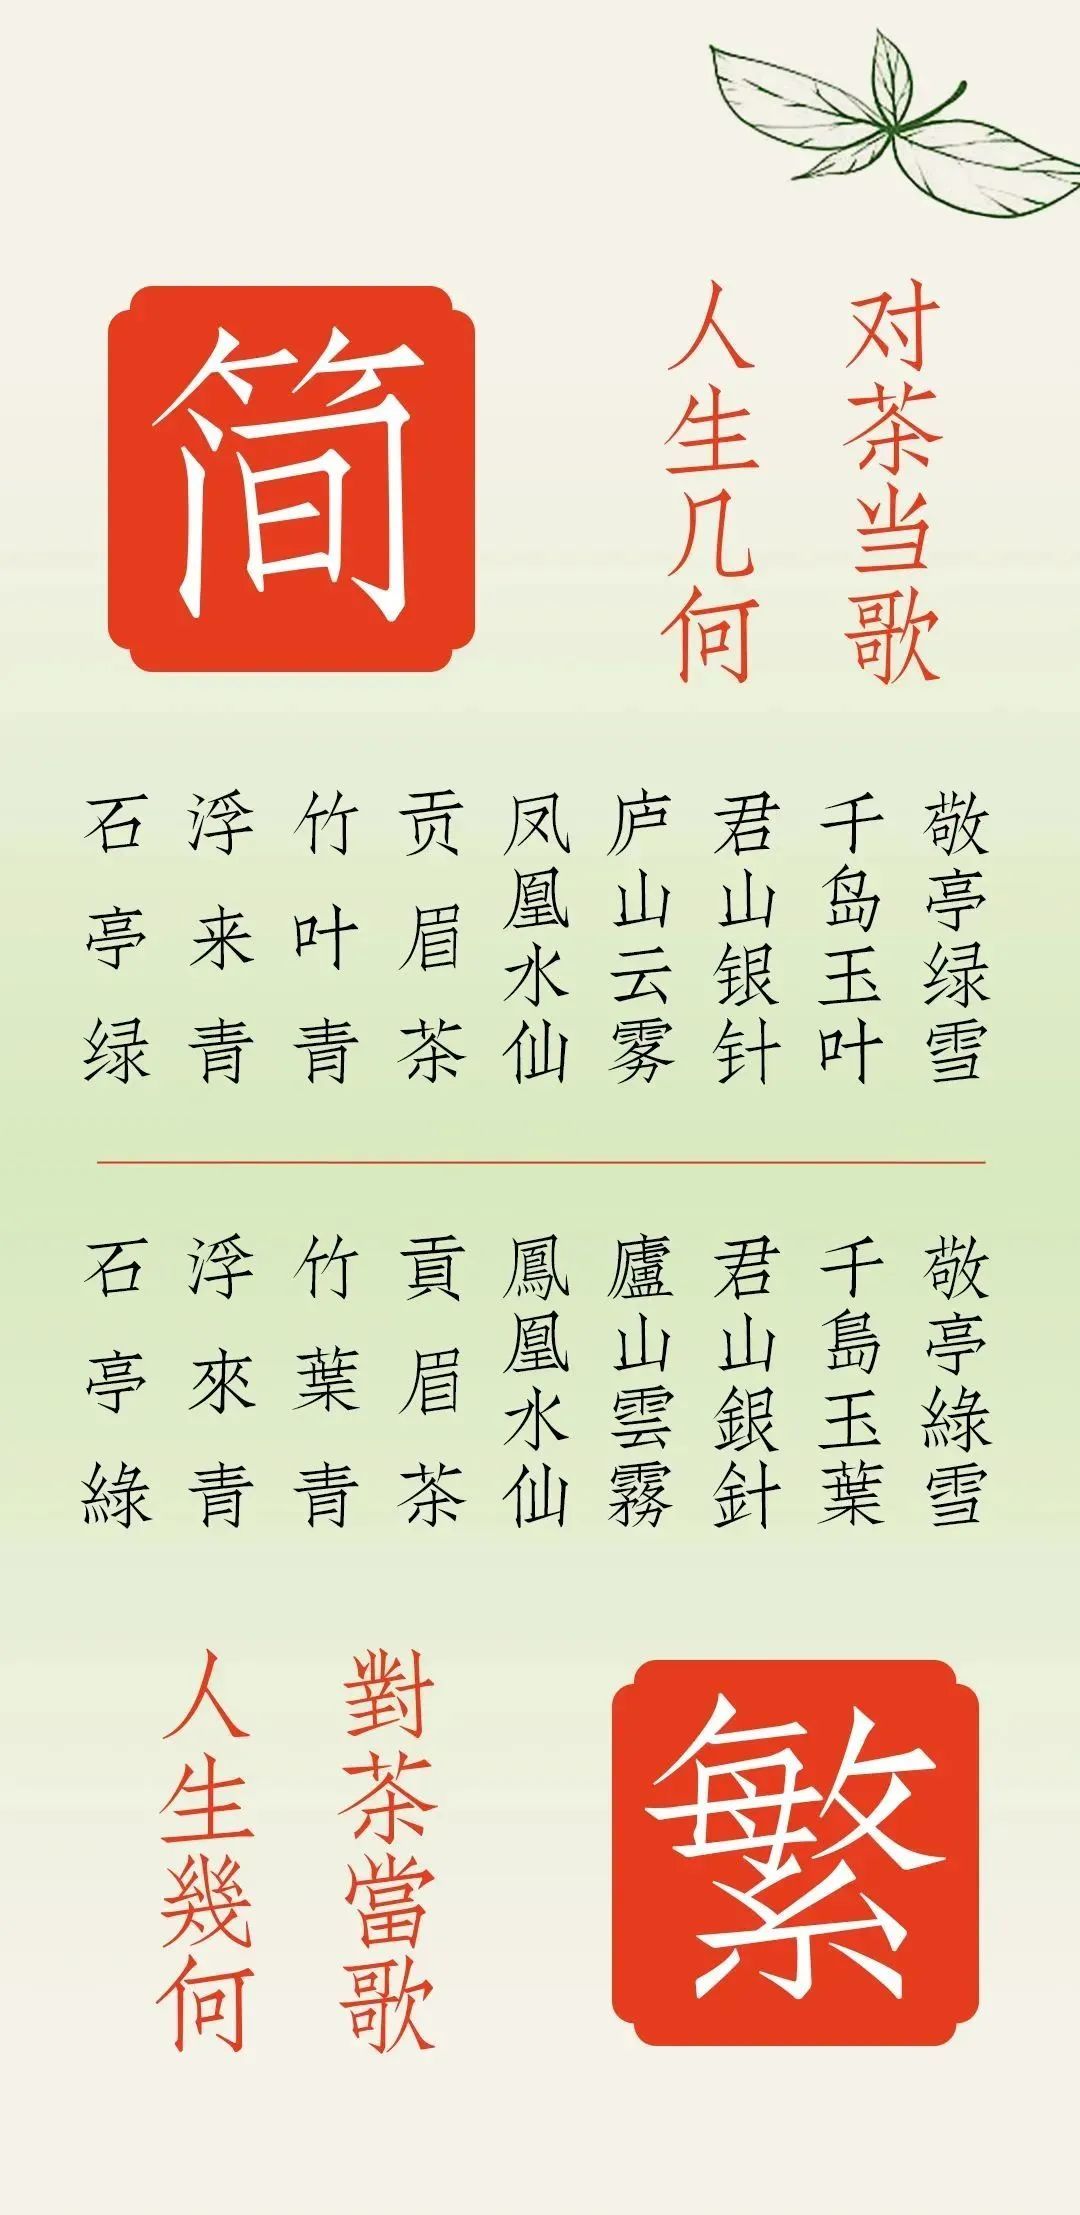 简
对茶当歌
人生几何
敬亭绿雪
千岛玉叶
君山银针
庐山云雾
凤凰水仙
贡眉茶
竹叶青
浮来青
石亭绿
敬亭綠雪
千島玉葉
君山銀針
廬山雲霧
鳳凰水仙
貢眉茶
竹葉青
浮來青
石亭綠
繁
對茶當歌
人生幾何